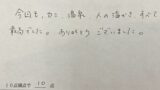 今回も、カニ、温泉、人の温かさ、すべて
最高でした。ありがとうございました。
10点満点で 10 点